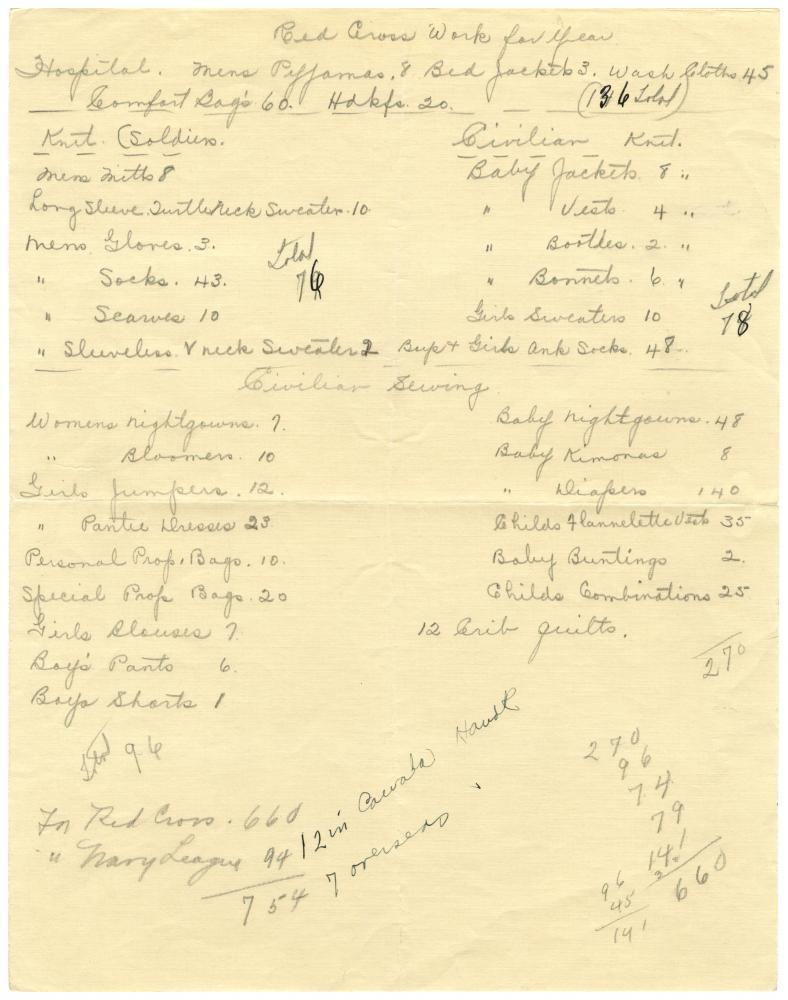 Red Cross Work for Year
Hospital. Mens Pyjamas. 8 Bed Jackets 3. Wash Cloths 45
Comfort Bags 60. Hdkfs. 20. (136 Total)
Knit (Soldiers.
Mens Mitts 8
Long Sleeve Turtle Neck Sweater. 10
Mens Gloves. 3.
" Socks. 43.
" Scarves 10
" Sleeveless V neck Sweaters 2
Total
76
Civilian Knit.
Baby Jackets 8 "
" Vests 4 "
" Bootees. 2. "
" Bonnets. 6. "
Girls Sweaters 10
Girls Ank Socks. 48.
Total
78
Civilian Sewing
Womens nightgowns. 7.
" Bloomers. 10
Girls Jumpers. 12.
" Pantie Dresses 23
Personal Prop. Bags. 10.
Special Prop Bags. 20
Girls Blouses 7.
Boy's Pants 6.
Boys Shorts 1
Total 96
Baby nightgowns. 48
Baby Kimonas 8
" Diapers 140
Childs Flannelette Vests 35
Baby Buntings 2.
Childs Combinations 25
12 Crib Quilts.
270
For Red Cross. 660
" Navy League 94
754
12 in Canada
7 overseas
270
96
74
79
141
660
96
45
141